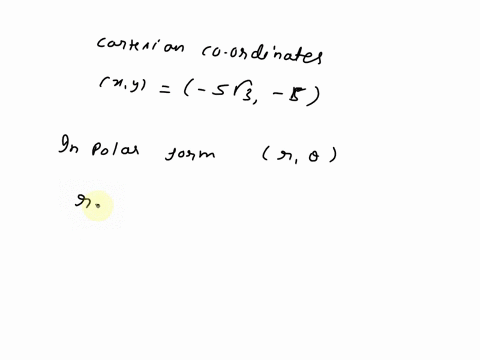 cartesian co-ordinates
(x,y) = (-5√3, -5)
In polar form (r, θ)
r